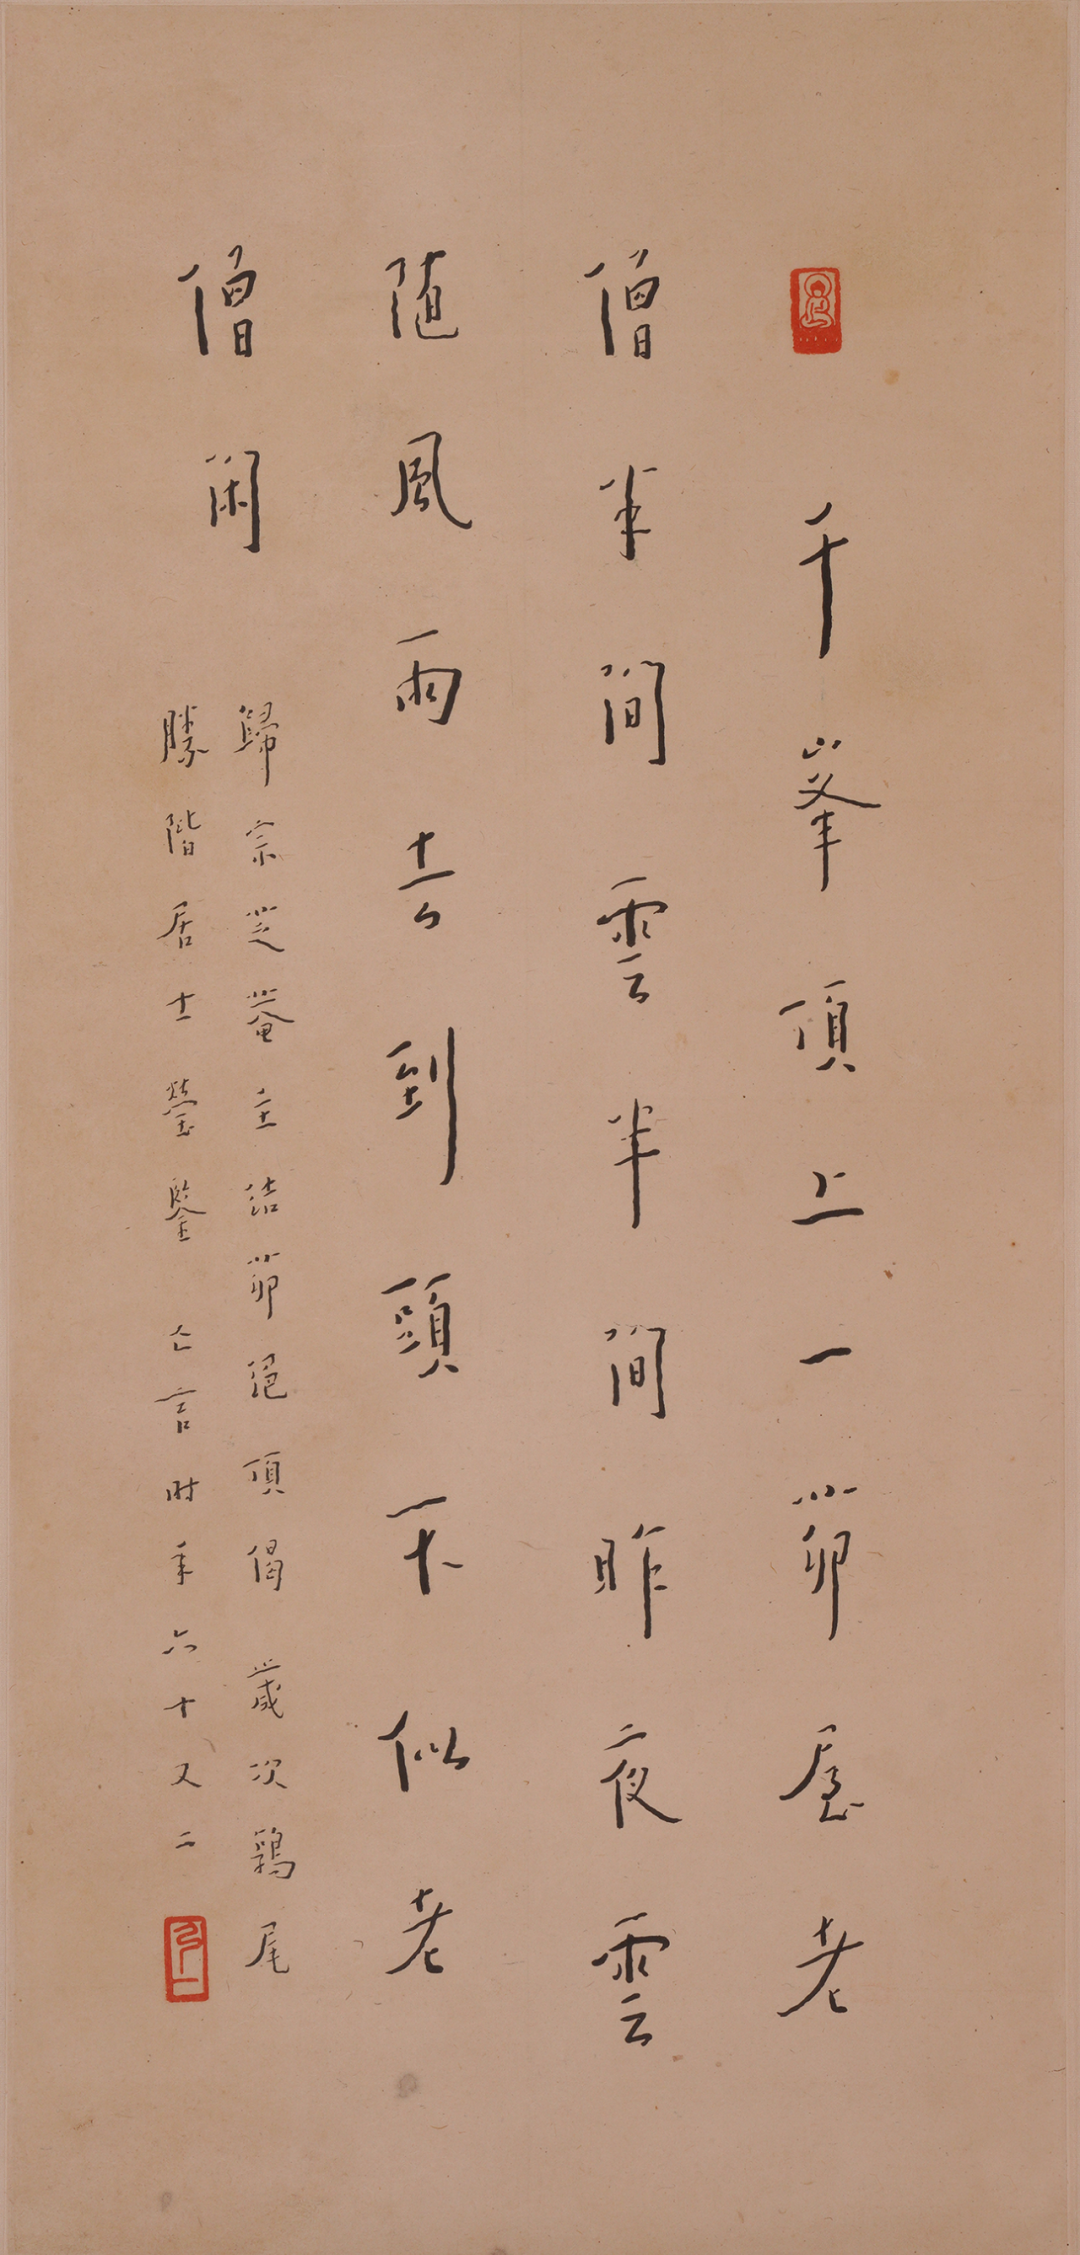 千峯頂上一茆屋老
僧半間雲半間昨夜雲
隨風雨去到頭不似老
僧閑
歸宗芝菴主結茆絕頂偈 歲次鶉尾
勝階居士瑩鑒 亡言時年六十又二